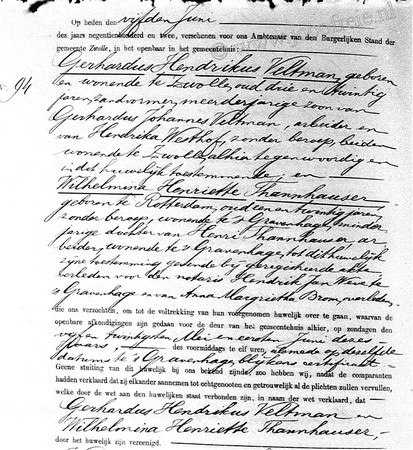 Op heden den vijfden Juni
des jaars negentienhonderd en twee, verschenen voor ons Ambtenaar van den Burgerlijken Stand der
gemeente Zwolle, in het openbaar in het gemeentehuis:
94
Gerhardus Hendrikus Veltman, geboren
en wonende te Zwolle, oud drie en twintig
jaren, zandvormer, meerderjarige zoon van
Gerhardus Johannes Veltman, arbeider en
van Hendrika Westhof, zonder beroep, beiden
wonende te Zwolle, alhier tegenwoordig en
in dit huwelijk toestemmende, en
Wilhelmina Henriette Thannhauser
geboren te Rotterdam, oud een en twintig jaren,
zonder beroep, wonende te 's Gravenhage, minder-
jarige dochter van Henri Thannhauser, ar-
beider, wonende te 's Gravenhage, tot dit huwelijk
zijne toestemming gevende bij geregistreerde akte
verleden voor den notaris Hendrik Jan te
's Gravenhage en van Anna Margrietha Brom, overleden,
die ons verzochten, om tot de voltrekking van hun voorgenomen huwelijk over te gaan, waarvan de
openbare afkondigingen zijn gedaan voor de deur van het gemeentehuis alhier, op zondagen den
vijf en twintigsten Mei en eersten Juni dezes
jaars, des voormiddags te elf uren, alsmede op dezelfde
datums te 's Gravenhage, blijkens certificaat
Geene stuiting van dit huwelijk bij ons bekend zijnde, zoo hebben wij, nadat de comparanten
hadden verklaard dat zij elkander aannemen tot echtgenooten en getrouwelijk al de plichten zullen vervullen,
welke door de wet aan den huwelijken staat verbonden zijn, in naam der wet verklaard, dat
Gerhardus Hendrikus Veltman en
Wilhelmina Henriette Thannhauser,
door het huwelijk zijn vereenigd.